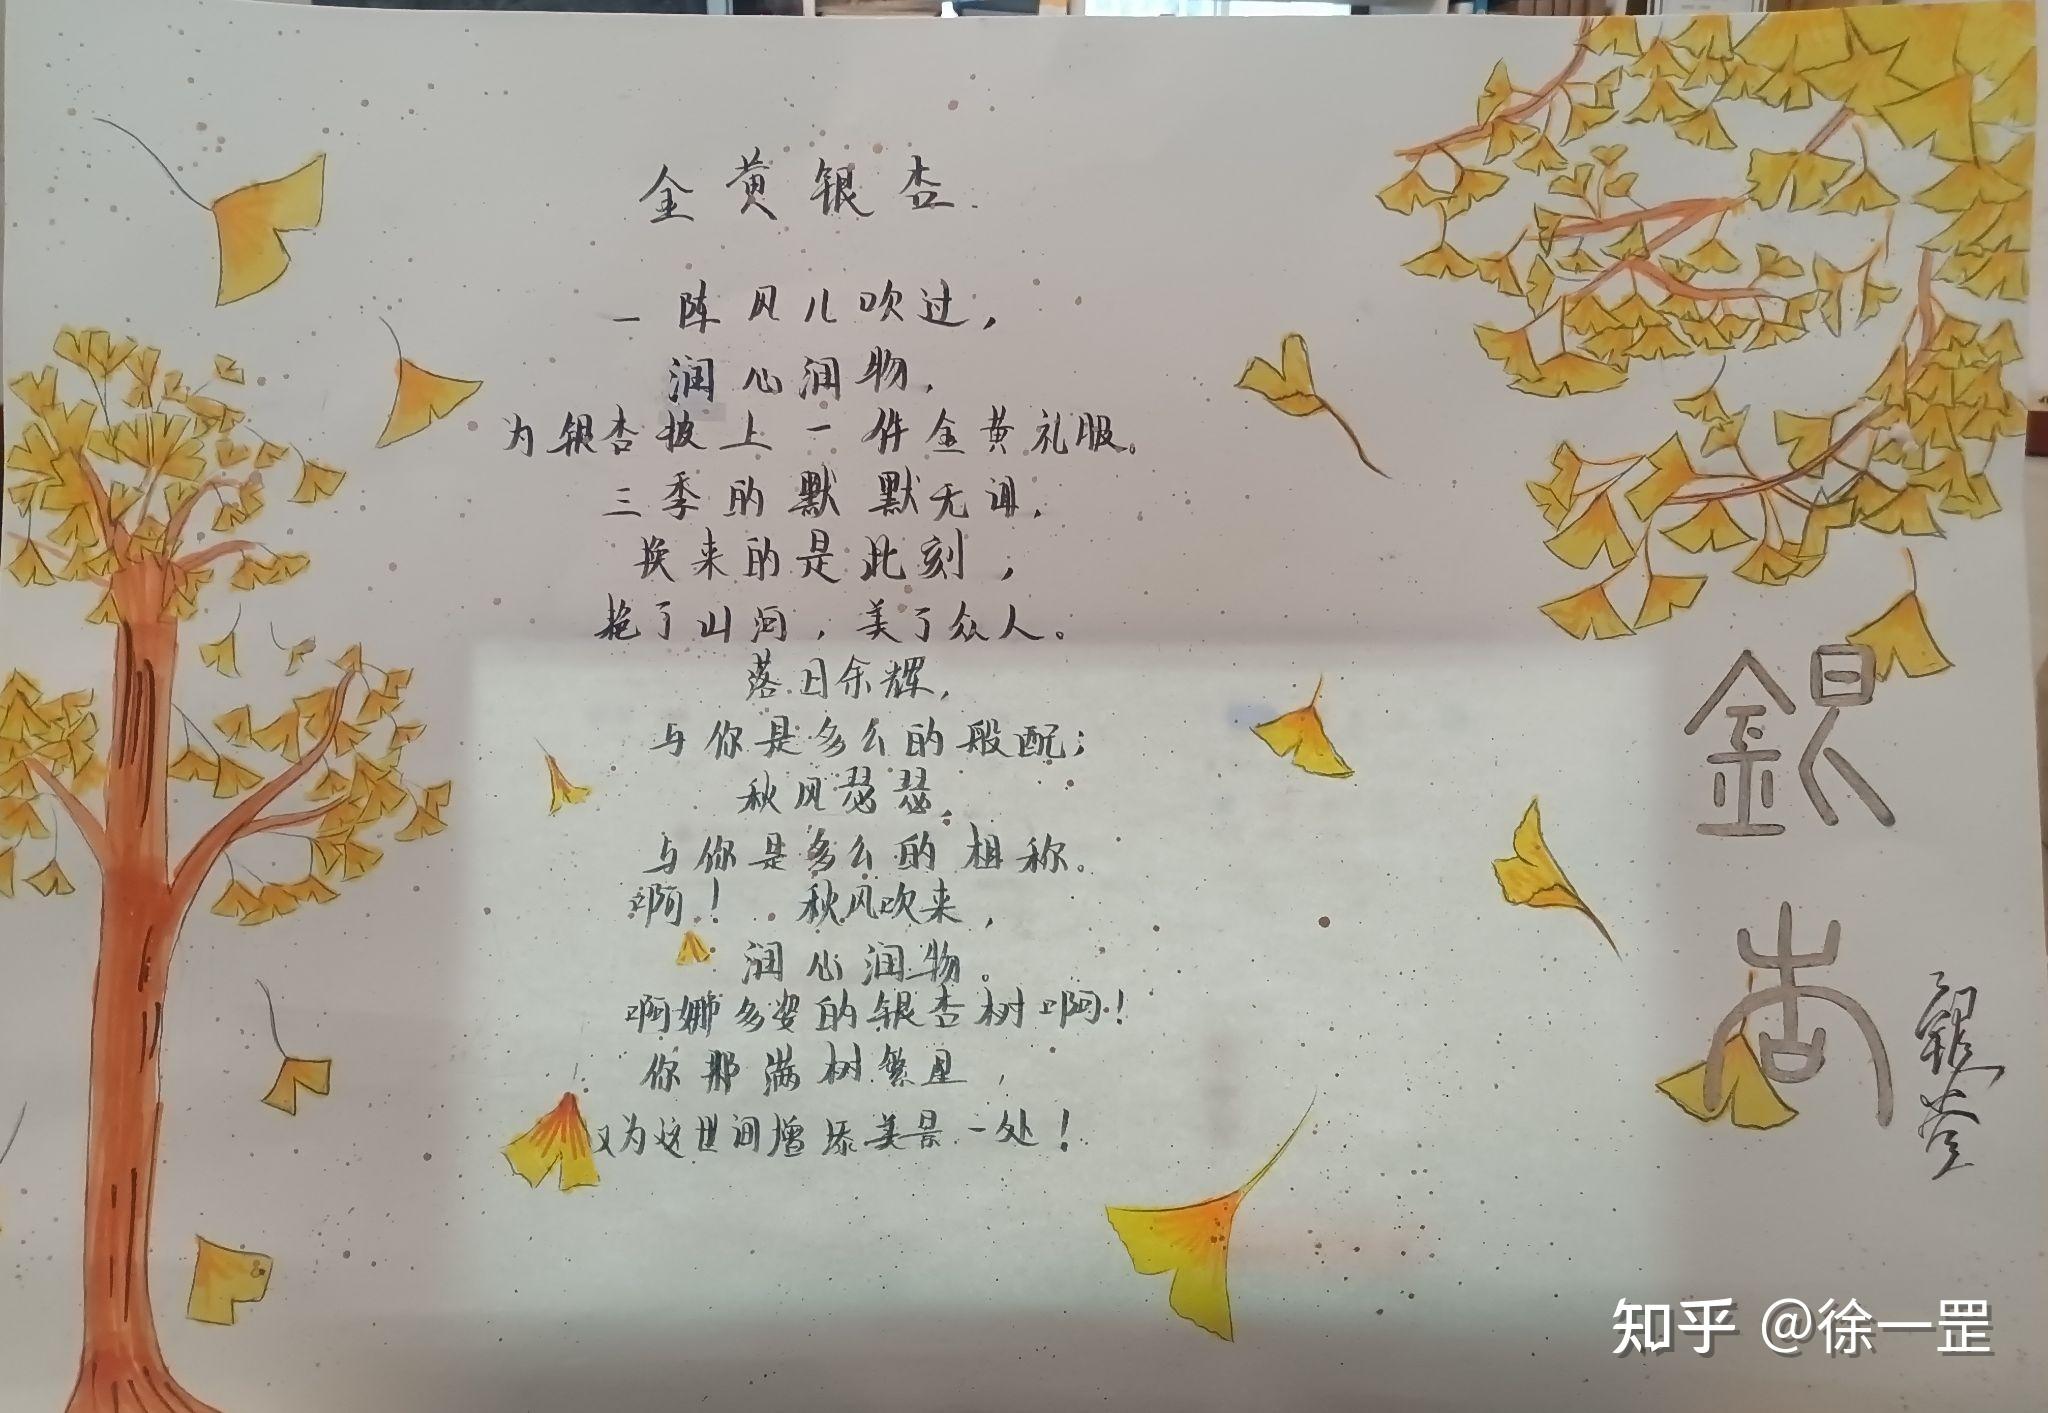 金黄银杏
一阵风儿吹过，
润心润物，
为银杏披上一件金黄礼服。
三季的默默无闻，
换来的是此刻，
艳了山河，美了众人。
落日余辉，
与你是多么的般配；
秋风瑟瑟，
与你是多么的相称。
啊！秋风吹来，
润心润物。
啊娜多姿的银杏树啊！
你那满树繁星，
又为这世间增添美景一处！
銀杏
银杏
知乎 @徐一罡